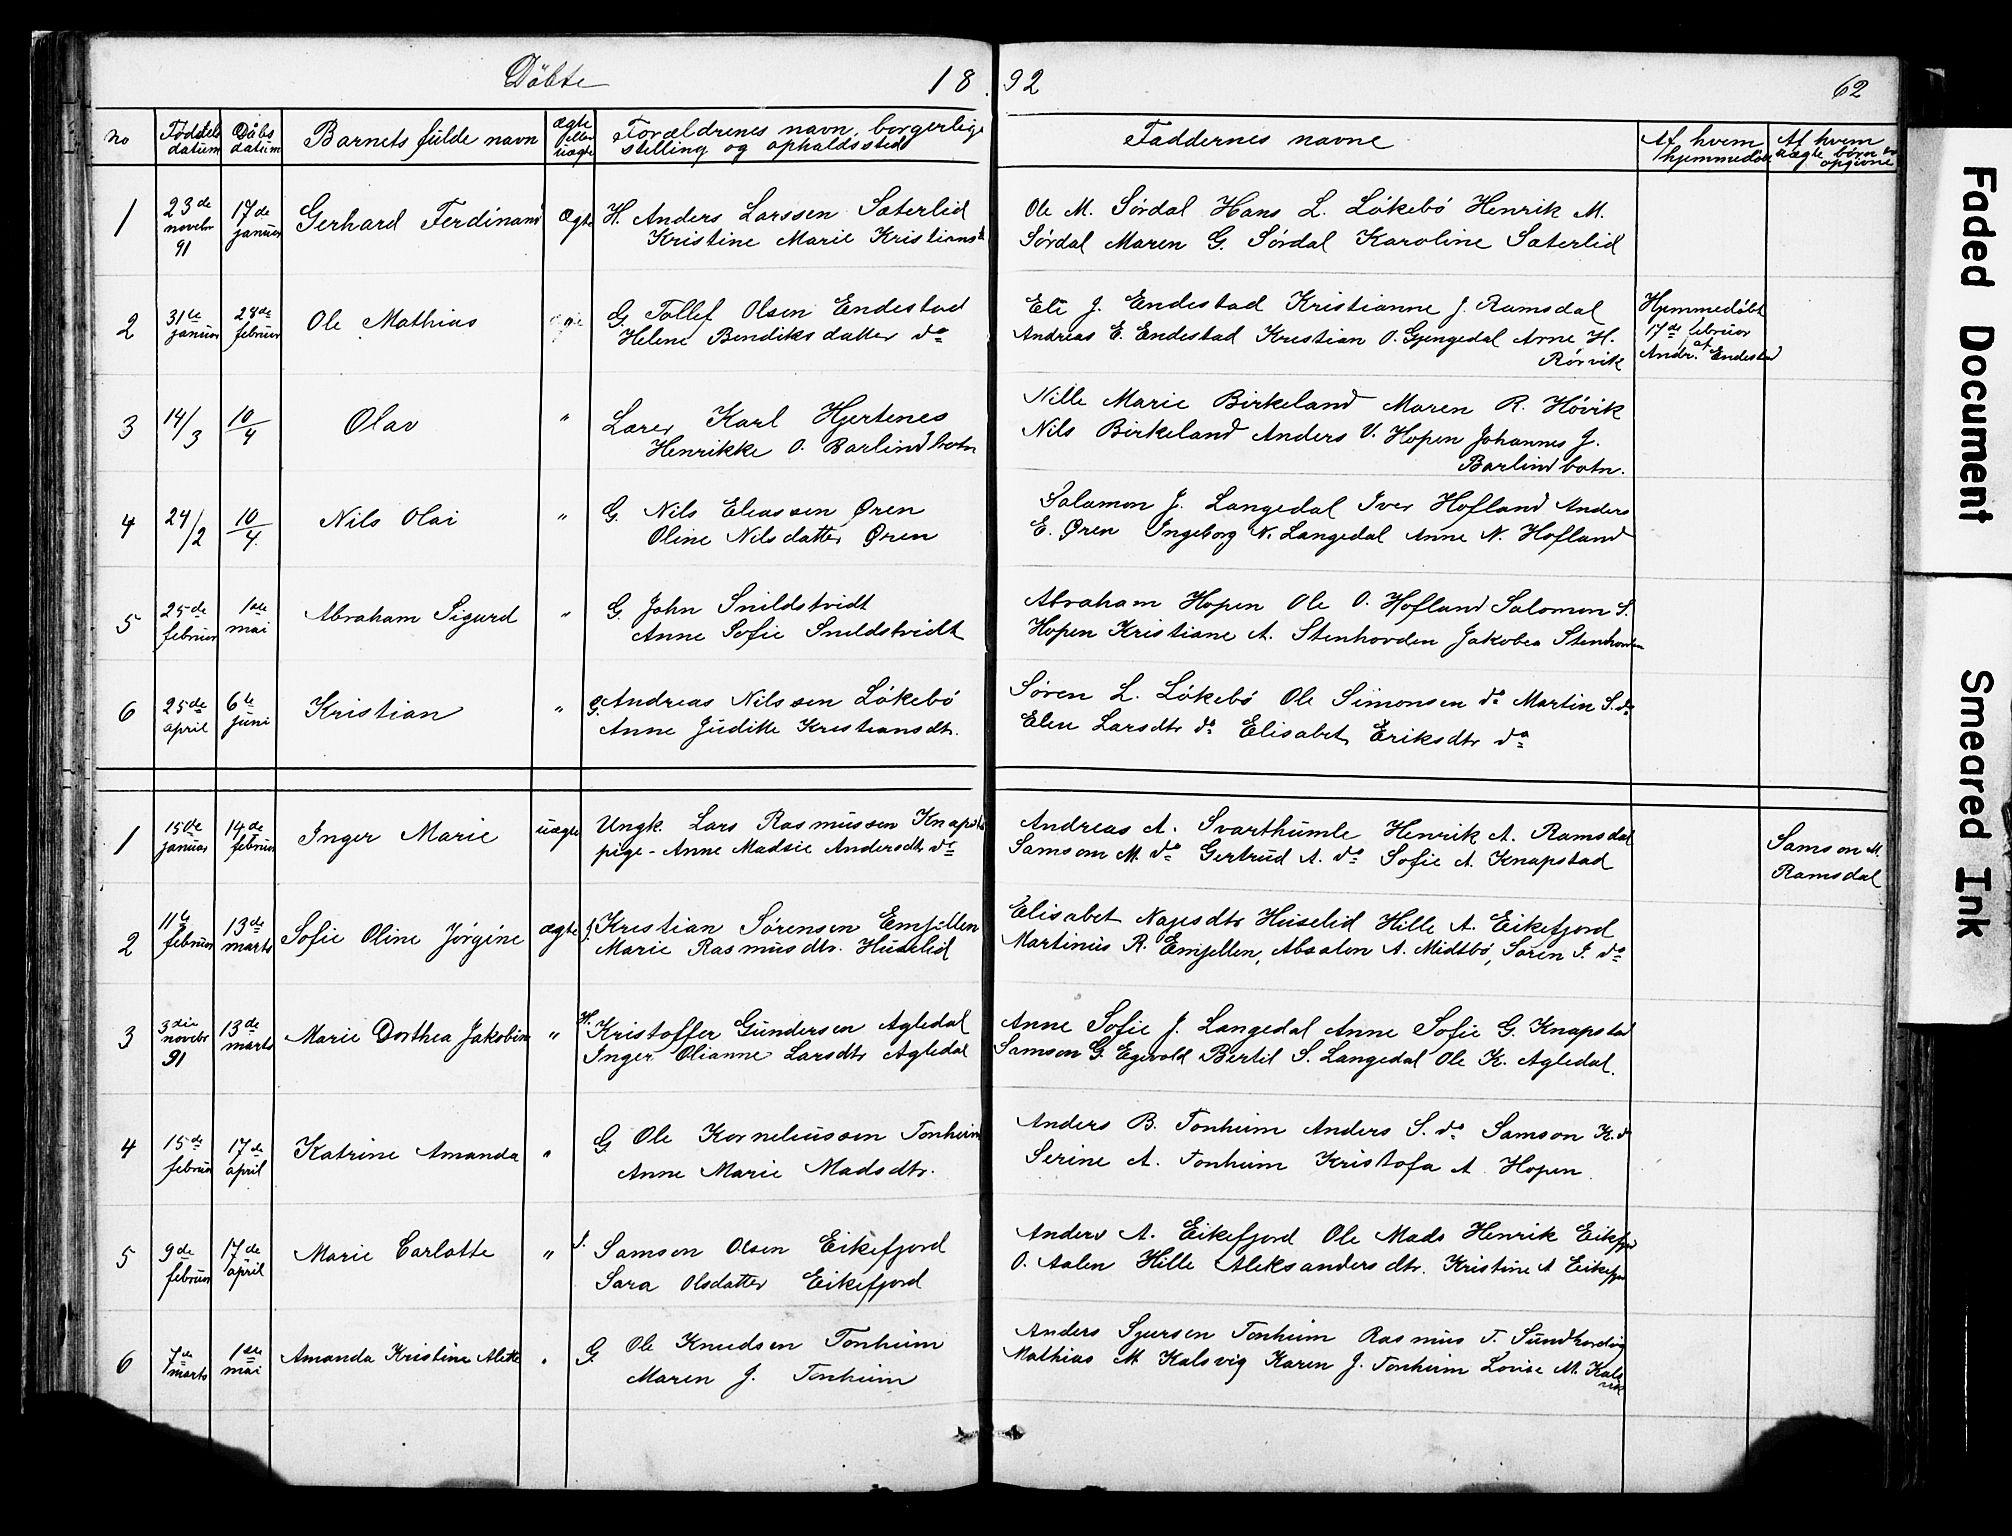 Döbte 18 92 62
No Fødsels datum Dåbs datum Barnets fulde navn Ægte eller uægte Forældrenes navn, borgerlige stilling og opholdssted Faddernes navne Af hvem hjemmedøbt Af hvem uægte børn opgivne
1 23de novebr 91 17de januar Gerhard Ferdinand Ægte H. Anders Larssen Sæterlid Ole M. Sørdal Hans L. Løkebö Henrik M.
Kristine Marie Kristians Sørdal Maren G. Sørdal Karoline Sæterlid
2 31te januar 28de februar Ole Mathias G Tollef Olsen Endestad Eli J. Endestad Kristianne J. Ramsdal Hjemmedöbt
Helene Bendiksdatter do Andreas E. Endestad Kristian O. Gjengedal Arne H. 17de februar af
Rørvik Andr. Endestad
3 14/3 10/4 Olav " Lærer Karl Hjertenes Nille Marie Birkeland Maren R. Høvik
Henrikke O. Barlindbotn Nils Birkeland Anders V. Hopen Johannes J.
Barlindbotn.
4 24/2 10/4 Nils Olai " G. Nils Eliassen Øren Salamon J. Langedal Iver Hofland Anders
Oline Nilsdatter Øren E. Øren Ingeborg N. Langedal Anne N. Hofland
5 25de februar 1ste mai Abraham Sigurd " G. John Snildstvidt Abraham Hopen Ole O. Hofland Salomon S.
Anne Sofie Snildstvidt Hopen Kristiane A. Stenhovden Jakobea Stenhovden
6 25de april 6te juni Kristian " G. Andreas Nilssen Løkebö Søren L. Løkebö Ole Simonsen do Martin S. do
Anne Juditte Kristiansdtr. Elen Larsdtr do Elisabet Eriksdtr do
1 15de januar 14de februar Inger Marie uægte Ungk. Lars Rasmussen Knapstd Andreas A. Svarthumle Henrik A. Ramsdal Samson M.
pige - Anne Madsie Andersdtr do Samson M. do Gertrud A. do Sofie A. Knapstad Ramsdal
2 11te februar 13de marts Sofie Oline Jörgine ægte Kristian Sørensen Emjellen Elisabet Nagesdtr Huselid Hille A. Eikefjord
Marie Rasmusdtr. Huselid Martinus R. Emjellen, Absalon A. Midtbø, Søren J. do
3 3die novebr 91 13de marts Marie Dorthea Jakobine " H. Kristoffer Gundersen Agledal Anne Sofie J. Langedal Anne Sofie G. Knapstad
Inger Olianne Larsdtr Agledal Samson G. Egevold Bertil S. Langedal Ole K. Agledal.
4 15de februar 17de april Katrine Amanda " G Ole Korneliussen Tonheim Anders B. Tonheim Anders S. do Samson K. do
Anne Marie Madsdtr. Serine A. Tonheim Kristofa A. Hopen
5 9de februar 17de april Marie Carlotte " Samson Olsen Eikefjord Anders A. Eikefjord Ole Mads Henrik Eikefjor
Sara Olsdatter Eikefjord O. Aalen Hille Aleksandersdtr. Kristine A Eikefjor
6 7de marts 1ste mai Amanda Kristine Alette " G Ole Knudsen Tonheim Anders Sjursen Tonheim Rasmus T. Sundhordvig
Maren J. Tonheim Mathias M. Kalsvig Karen J. Tonheim Lovise M. Kals
vik
Faded Document
Smeared Ink